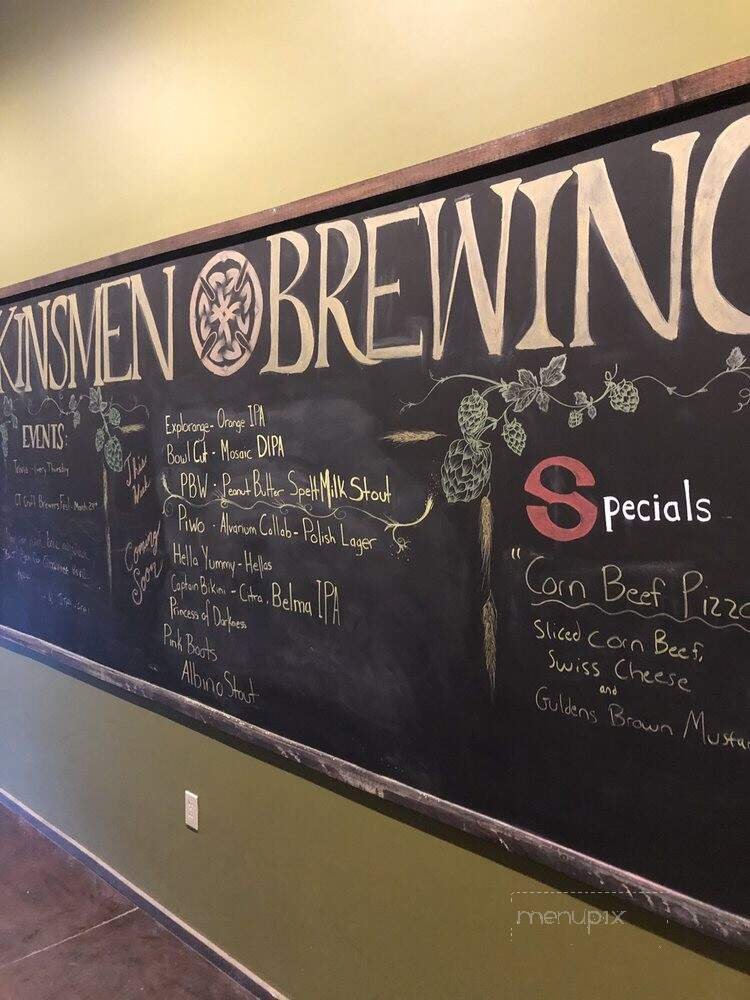 KINSMEN BREWING
EVENTS:
Trivia - Every Thursday
CT Craft Brewers Fest - March
This Week
Explorange - Orange IPA
Bowl Cut - Mosaic DIPA
PBW - Peanut Butter Spelt Milk Stout
Coming Soon
Piwo - Alvarium Collab - Polish Lager
Hella Yummy - Hellas
Captain Bikini - Citra, Belma IPA
Princess of Darkness
Pink Boots
Albino Stout
Specials
"Corn Beef Pizza
Sliced Corn Beef,
Swiss Cheese
and
Guldens Brown Mustar
menupix